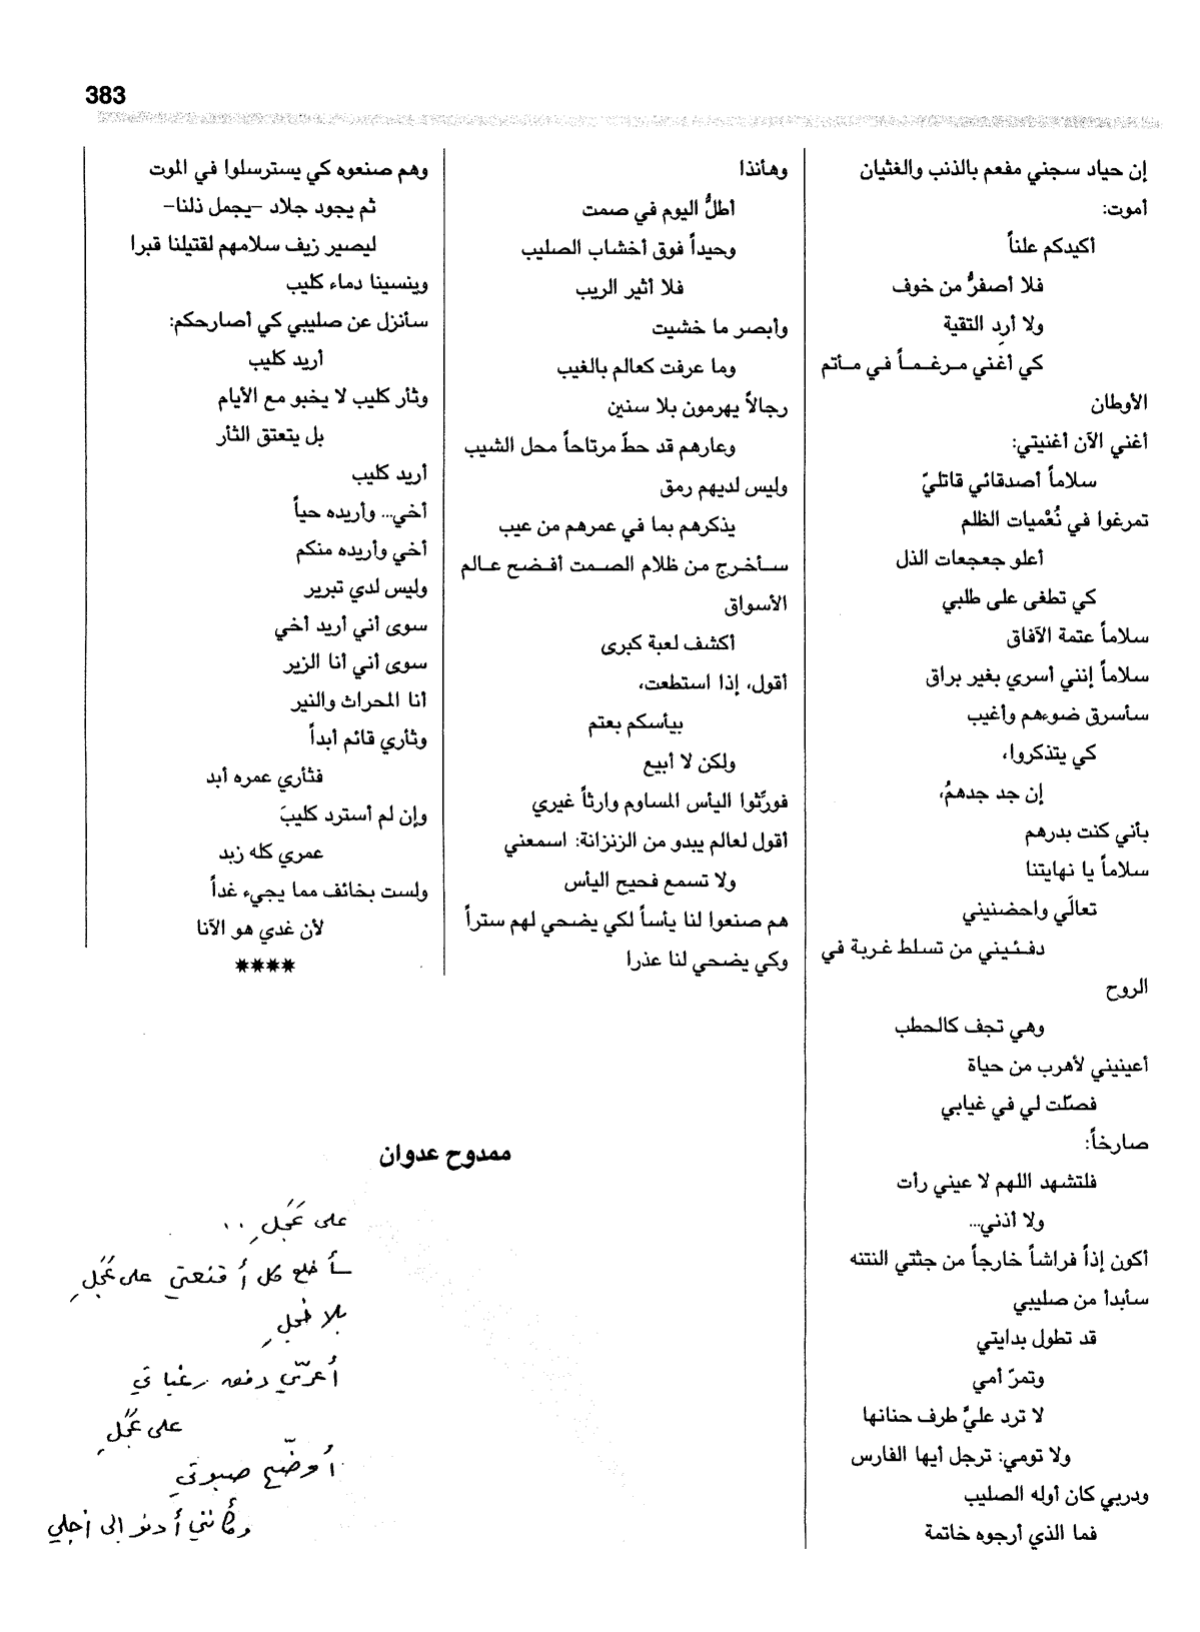 383
إن حياد سجني مفعم بالذنب والغثيان
أموت:
أكيدكم علناً
فلا أصفرُّ من خوف
ولا أرِد التقية
كي أغني مـرغـمـاً في مـأتم
الأوطان
أغني الآن أغنيتي:
سلاماً أصدقائي قاتليّ
تمرغوا في نُعْميات الظلم
أعلو جعجعات الذل
كي تطغى على طلبي
سلاماً عتمة الآفاق
سلاماً إنني أسري بغير براق
سأسرق ضوءهم وأغيب
كي يتذكروا،
إن جد جدهمُ،
بأني كنت بدرهم
سلاماً يا نهايتنا
تعالَي واحضنيني
دفـئـيني من تسلط غـربة في
الروح
وهي تجف كالحطب
أعينيني لأهرب من حياة
فصّلت لي في غيابي
صارخاً:
فلتشهد اللهم لا عيني رأت
ولا أذني...
أكون إذاً فراشاً خارجاً من جثتي النتنه
سأبدأ من صليبي
قد تطول بدايتي
وتمرّ أمي
لا ترد عليَّ طرف حنانها
ولا تومي: ترجل أيها الفارس
ودربي كان أوله الصليب
فما الذي أرجوه خاتمة
وهأنذا
أطلُّ اليوم في صمت
وحيداً فوق أخشاب الصليب
فلا أثير الريب
وأبصر ما خشيت
وما عرفت كعالم بالغيب
رجالاً يهرمون بلا سنين
وعارهم قد حطّ مرتاحاً محل الشيب
وليس لديهم رمق
يذكرهم بما في عمرهم من عيب
سـأخـرج من ظلام الصـمت أفـضح عـالم
الأسواق
أكشف لعبة كبرى
أقول، إذا استطعت،
بيأسكم بعتم
ولكن لا أبيع
فورِّثوا اليأس المساوم وارثاً غيري
أقول لعالم يبدو من الزنزانة: اسمعني
ولا تسمع فحيح اليأس
هم صنعوا لنا يأساً لكي يضحي لهم ستراً
وكي يضحي لنا عذرا
وهم صنعوه كي يسترسلوا في الموت
ثم يجود جلاد –يجمل ذلنا–
ليصير زيف سلامهم لقتيلنا قبرا
وينسينا دماء كليب
سأنزل عن صليبي كي أصارحكم:
أريد كليب
وثأر كليب لا يخبو مع الأيام
بل يتعتق الثأر
أريد كليب
أخي... وأريده حياً
أخي وأريده منكم
وليس لدي تبرير
سوى أني أريد أخي
سوى أني أنا الزير
أنا المحراث والنير
وثأري قائم أبداً
فثأري عمره أبد
وإن لم أسترد كليبَ
عمري كله زبد
ولست بخائف مما يجيء غداً
لأن غدي هو الآنا
****
ممدوح عدوان
على عَجَلٍ ..
سأخلع كل أقنعتي على عَجَلٍ
بلا خجلٍ
أُعرّي دفق رغباتي
على عَجَلٍ
أُوضّح صبوتي
وكأنني أدنو إلى أجلي